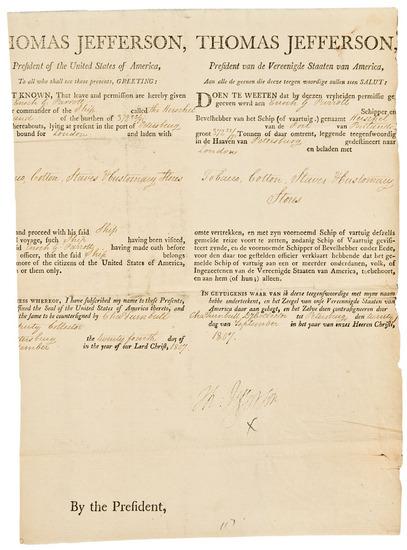 HOMAS JEFFERSON,
President of the United States of America,
To all who shall see these presents, GREETING:
T KNOWN, That leave and permission are hereby given
Enoch G Parrott
commander of the Ship called the Herschel
of the burthen of
hereabouts, lying at present in the port of Petersburg
bound for London and laden with
Cotton, Staves & Customary Stores
and proceed with his said Ship
voyage, such Ship having been visited,
said Enoch G Parrott having made oath before
officer, that the said Ship belongs
more of the citizens of the United States of America,
or them only.
ESS WHEREOF, I have subscribed my name to these Presents,
affixed the Seal of the United States of America thereto, and
the same to be countersigned by Chs Turnbull
Deputy Collector
the twenty fourth day of
in the year of our Lord Christ, 1807.
THOMAS JEFFERSON,
President van de Vereenigde Staaten van America,
Aan alle de geenen die deeze tergen woordige zullen zien SALUT:
DOEN TE WEETEN dat by dezen vryheiden permissie
gegeven werd aan Enoch G Parrott
Schipper en
Bevelhebber van het Schip (of vaartuig) genaemt Herschel
van de Port of
groot Tonnen of daar omtrent, leggende tegenwoordig
in de Haaven van Petersburg gedestineert naar
London en beladen met
Tobacco, Cotton, Staves & Customary
Stores
omte vertrekken, en met zyn voornoemd Schip of vartuig desselfs
gemelde reize voort te zetten, zodanig Schip of Vaartuig geviset-
teert zynde, en de voornoemde Schipper of Bevelhebber onder Eede,
voor den daar toe gestelden officier verklaart hebbende dat het
gemelde Schip of vaartuig aan een of meerder onderdaanen, volk, of
Ingezetenen van de Vereenigde Staaten van America, toebehoort,
aan hem (of hun) alleen.
IN GETUIGENIS WAAR VAN ik deeze teegenswoordige met mynn naam
hebbe onderteekent, en het Zeegel van onze Vereenigde Staaten van
America daar aan gehegt, en het Zelve doen contrasigneeren door
Chs Turnbull Dy Collector te Petersburg den twenty
dag van September in het jaar van onze Heeren Christi,
1807.
Th. Jefferson
x
By the President,